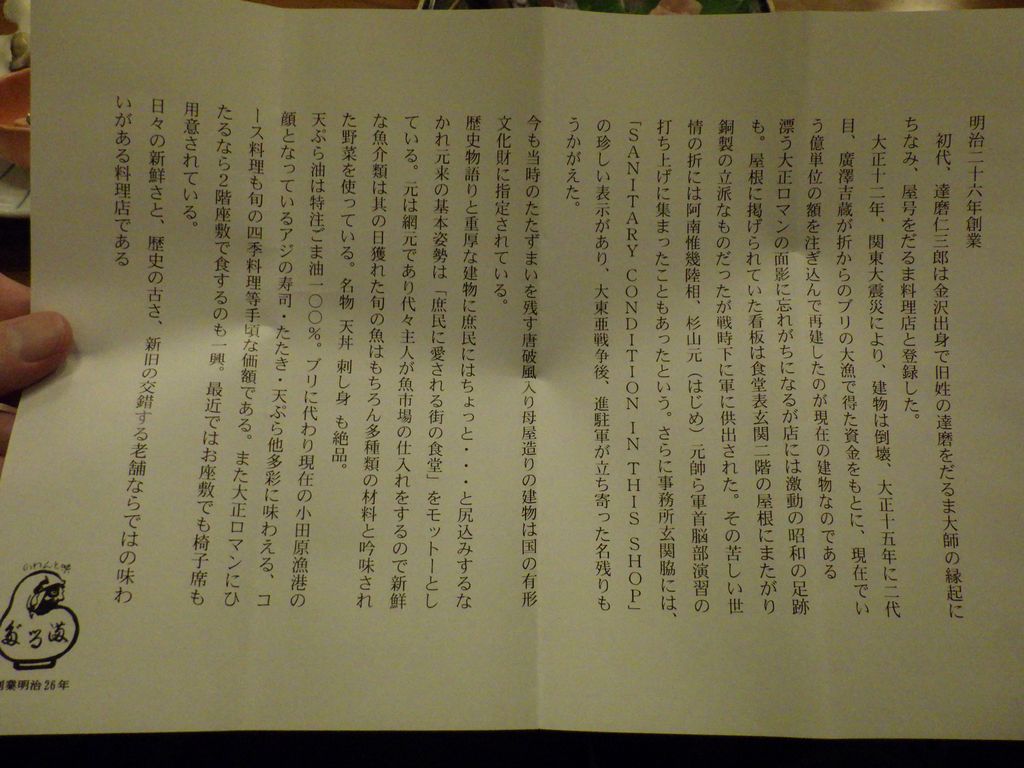 明治二十六年創業
初代、達磨仁三郎は金沢出身で旧姓の達磨をだるま大師の縁起に
ちなみ、屋号をだるま料理店と登録した。
大正十二年、関東大震災により、建物は倒壊、大正十五年に二代
目、廣澤吉蔵が折からのブリの大漁で得た資金をもとに、現在でい
う億単位の額を注ぎ込んで再建したのが現在の建物なのである
漂う大正ロマンの面影に忘れがちになるが店には激動の昭和の足跡
も。屋根に掲げられていた看板は食堂表玄関二階の屋根にまたがり
銅製の立派なものだったが戦時下に軍に供出された。その苦しい世
情の折には阿南惟幾陸相、杉山元（はじめ）元帥ら軍首脳部演習の
打ち上げに集まったこともあったという。さらに事務所玄関脇には、
「SANITARY CONDITION IN THIS SHOP」
の珍しい表示があり、大東亜戦争後、進駐軍が立ち寄った名残りも
うかがえた。
今も当時のたたずまいを残す唐破風入り母屋造りの建物は国の有形
文化財に指定されている。
歴史物語りと重厚な建物に庶民にはちょっと・・・と尻込みするな
かれ元来の基本姿勢は「庶民に愛される街の食堂」をモットーとし
ている。元は網元であり代々主人が魚市場の仕入れをするので新鮮
な魚介類は其の日獲れた旬の魚はもちろん多種類の材料と吟味され
た野菜を使っている。名物 天丼 刺し身 も絶品。
天ぷら油は特注ごま油一〇〇％。ブリに代わり現在の小田原漁港の
顔となっているアジの寿司・たたき・天ぷら他多彩に味わえる、コ
ース料理も旬の四季料理等手頃な価額である。また大正ロマンにひ
たるなら２階座敷で食するのも一興。最近ではお座敷でも椅子席も
用意されている。
日々の新鮮さと、歴史の古さ、新旧の交錯する老舗ならではの味わ
いがある料理店である
だるま
創業明治26年